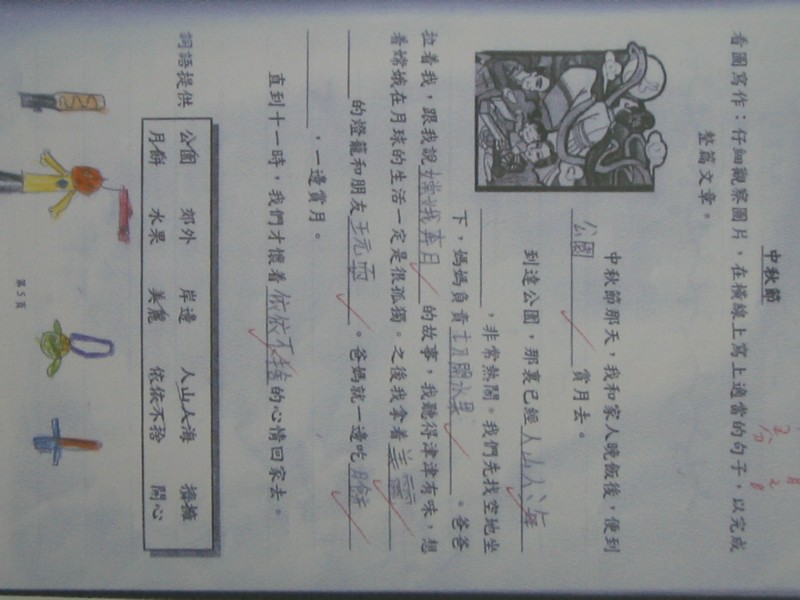 中秋節
看圖寫作：仔細觀察圖片，在橫線上寫上適當的句子，以完成
整篇文章。
中秋節那天，我和家人晚飯後，便到
公園 賞月去。
到達公園，那裏已經人山人海
，非常熱鬧。我們先找空地坐
下，媽媽負責切開水果。爸爸
拉着我，跟我說嫦娥奔月的故事，我聽得津津有味，想
着嫦娥在月球的生活一定是很孤獨。之後我拿着美麗
的燈籠和朋友玩耍。爸媽就一邊吃月餅
，一邊賞月。
直到十一時，我們才懷着依依不捨的心情回家去。
詞語提供
公園 郊外 岸邊 人山人海 擠擁
月餅 水果 美麗 依依不捨 開心
第5頁